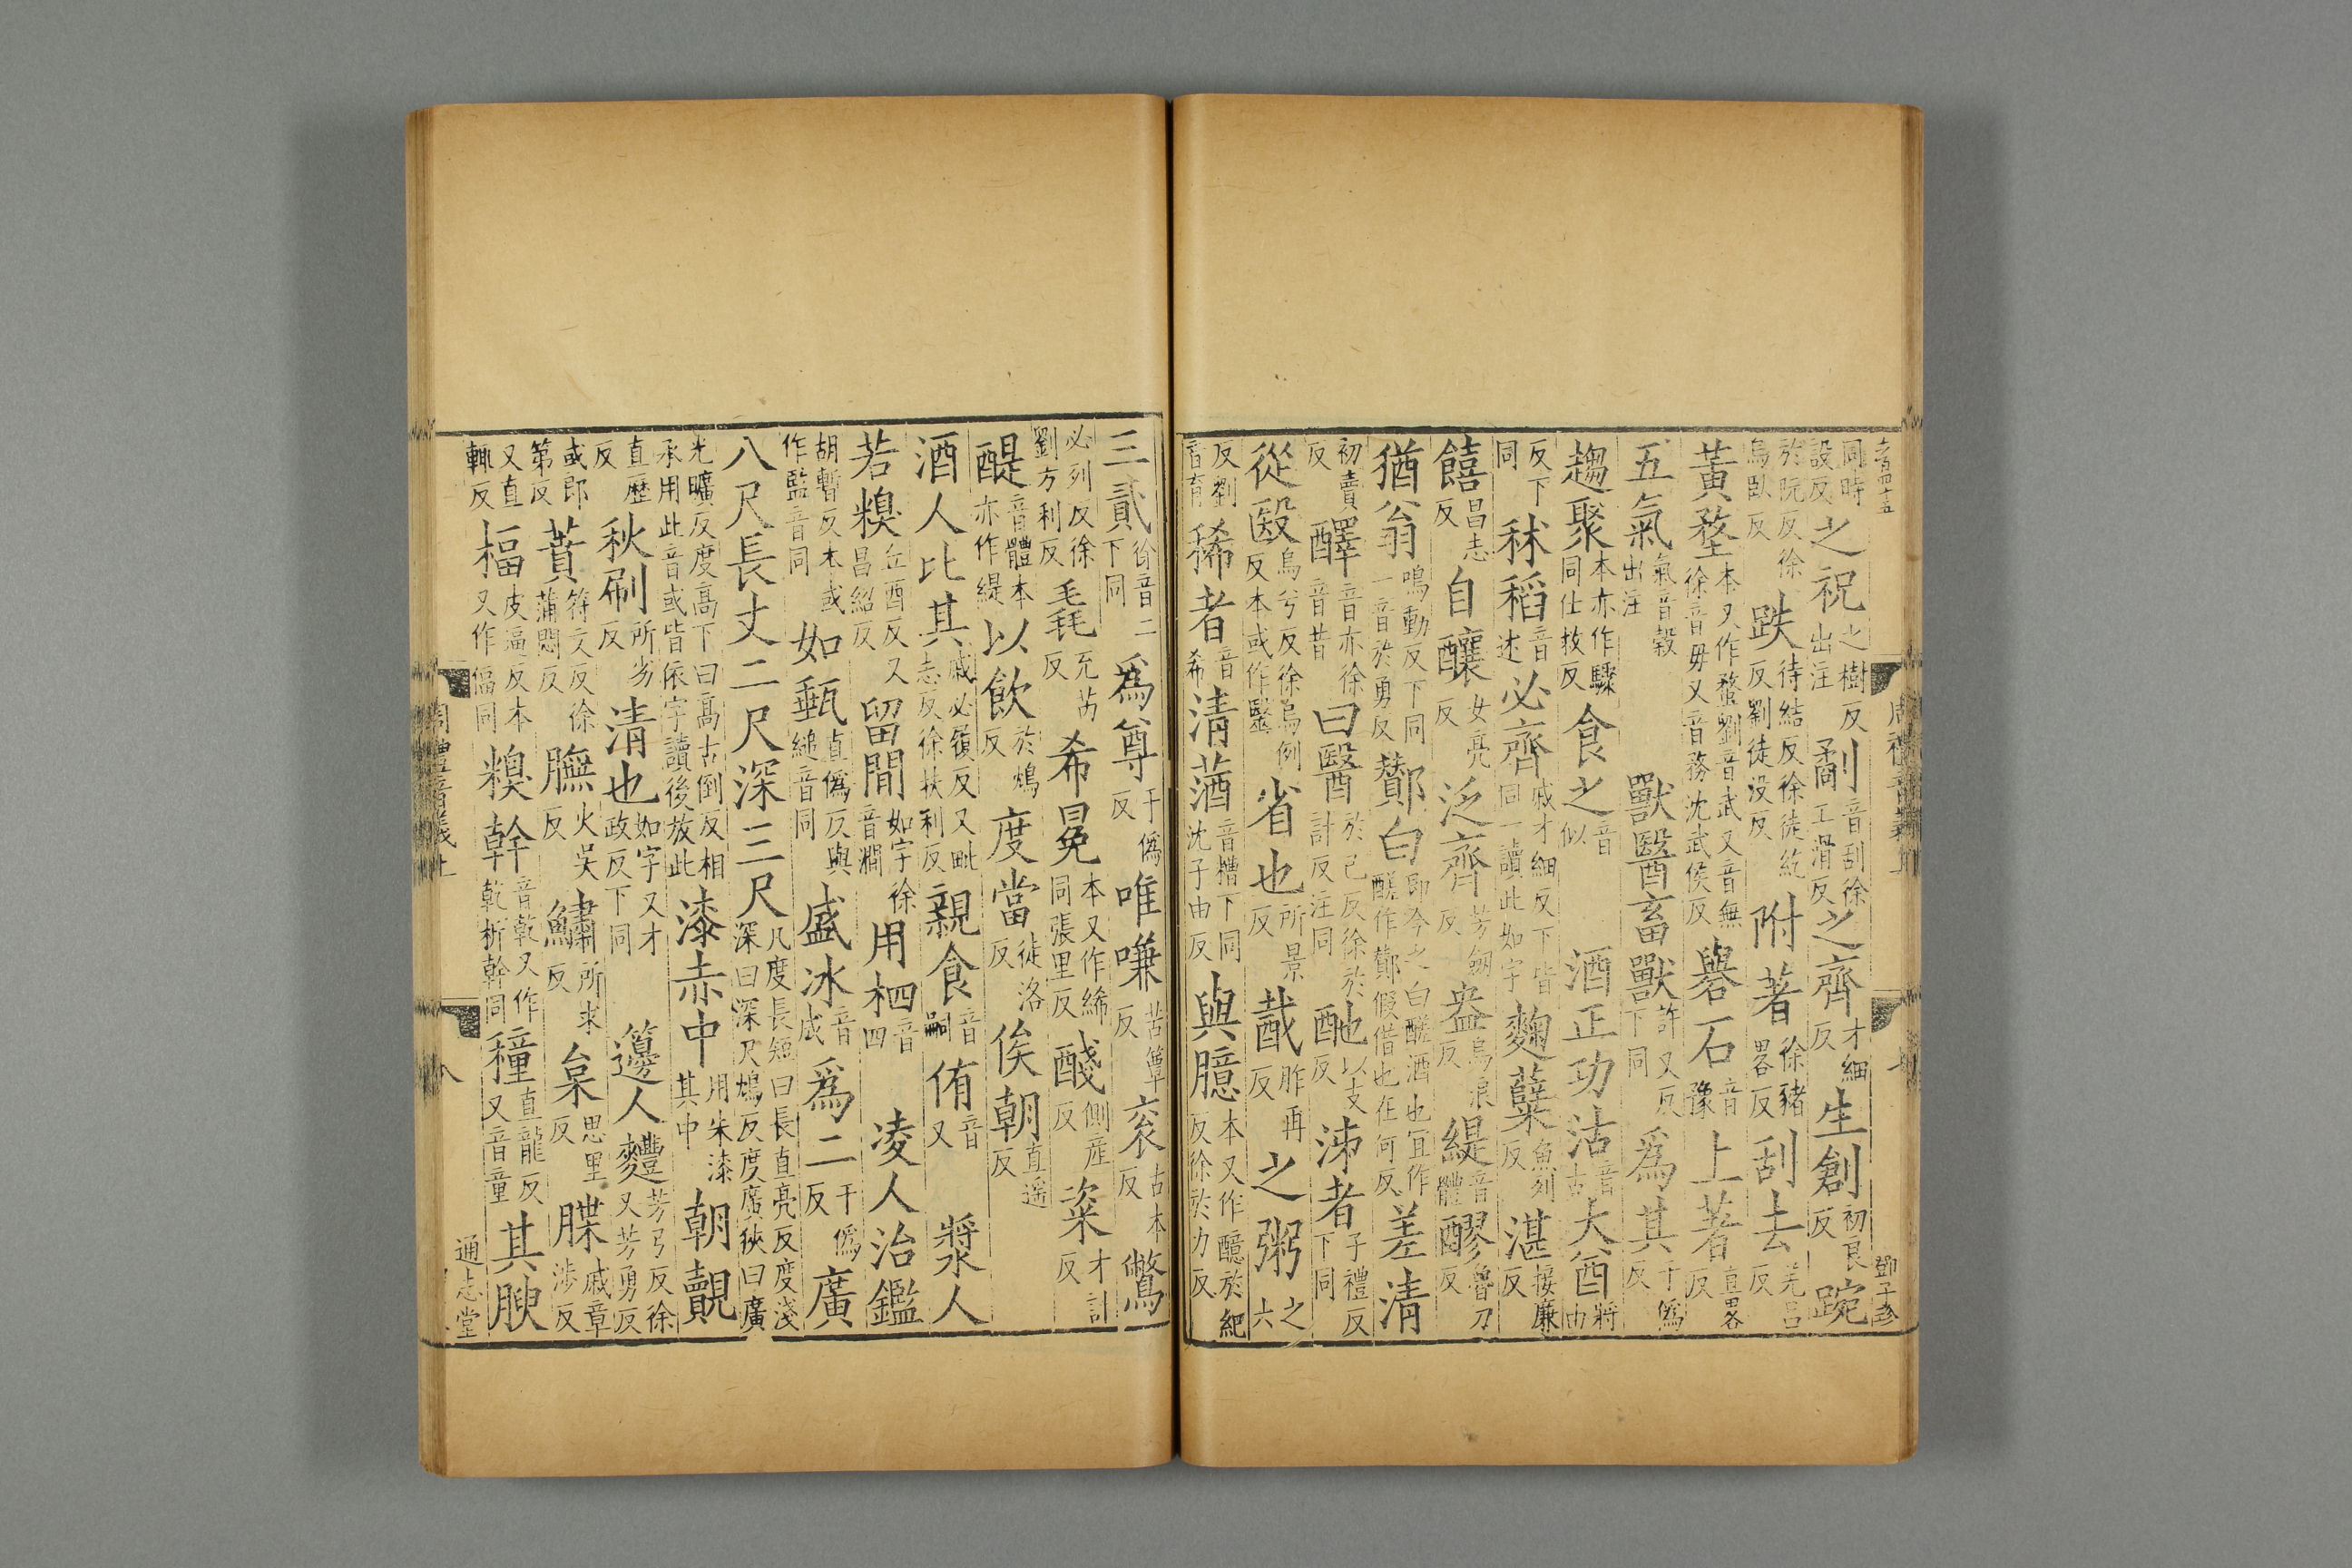 同時設反之祝之樹反出注劀音刮徐工滑反之齊才細反生創初良反踠
於阮反徐烏臥反跌待結反徐徒紇反劉徒没反附著徐豬畧反刮去羌呂反
黃堥本又作蝥劉音武又音無徐音毋又音務沈武侯反礜石音豫上著直畧反
五氣氣音穀出注獸醫畜獸許又反下同爲其于僞反
趨聚本亦作驟同仕救反食之音似酒正功沽音古大酋將由
反下同秫稻音述必齊戚才細反下皆同一讀此如字麴糵魚列反湛接廉反
饎昌志反自釀女亮反泛齊芳劒反盎烏浪反緹音體醪魯刀反
猶翁鳴動反下同一音於勇反酇白即今之白醝酒也宜作醝作酇假借也在何反差清
初賣反醳音亦徐音昔曰醫於己反徐於計反注同酏以支反沛者子禮反下同
從毉烏兮反徐烏例反本或作醫省也所景反酨昨再反之粥之六
反劉音育稀者音希清䣱音糟下同沈子由反與臆本又作醷於紀反徐於力反
三貳徐音二下同爲尊于僞反唯嗛苦簟反衮古本反鷩
必列反徐劉方利反毳充芮反希冕本又作絺同張里反醆側產反粢才計反
醍音體本亦作緹以飲於鴆反度當徒洛反俟朝直遥反
酒人比其戚必履反又毗志反徐扶利反親食音嗣侑音又漿人
若糗丘酉反又昌紹反留間如字徐音澗用柶音四凌人治鑑
胡暫反本或作監音同如甀直僞反與縋音同盛冰音成爲二于僞反廣
八尺長丈二尺深三尺凡度長短曰長直亮反度淺深曰深尺鴆反度廣狹曰廣
光曠反度高下曰高古倒反相承用此音或皆依字讀後放此漆赤中用朱漆其中朝覿
直歷反秋刷所劣反清也如字又才政反下同籩人麷芳弓反徐又芳勇反
或郎第反蕡符文反徐蒲悶反膴火吳反鱐所求反枲思里反牒戚章涉反
又直輒反楅皮逼反本又作偪同糗幹音乾又作乾析幹同穜直龍反又音童其腴
通志堂